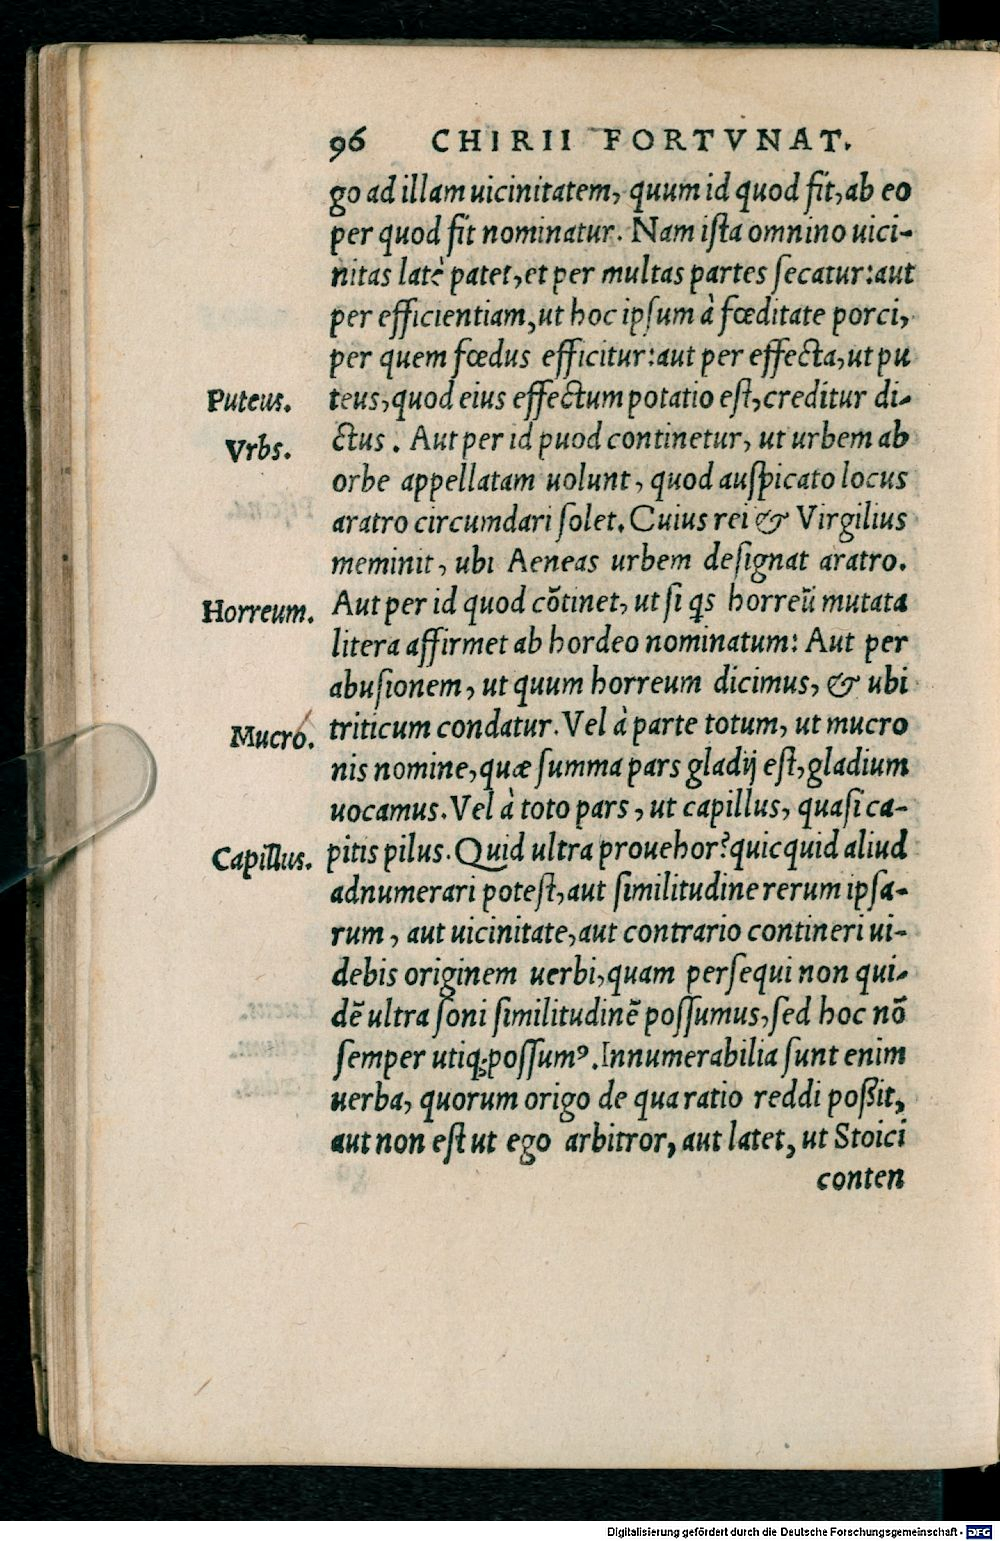 96 CHIRII FORTVNAT.
go ad illam uicinitatem, quum id quod fit, ab eo
per quod fit nominatur. Nam ista omnino uici-
nitas latè patet, et per multas partes secatur: aut
per efficientiam, ut hoc ipsum à fœditate porci,
per quem fœdus efficitur: aut per effecta, ut pu
Puteus.
teus, quod eius effectum potatio est, creditur di-
Vrbs.
ctus. Aut per id puod continetur, ut urbem ab
orbe appellatam uolunt, quod auspicato locus
aratro circumdari solet. Cuius rei & Virgilius
meminit, ubi Aeneas urbem designat aratro.
Horreum.
Aut per id quod cōtinet, ut si qs horreū mutata
litera affirmet ab hordeo nominatum: Aut per
abusionem, ut quum horreum dicimus, & ubi
Mucro.
triticum condatur. Vel à parte totum, ut mucro
nis nomine, quæ summa pars gladij est, gladium
uocamus. Vel à toto pars, ut capillus, quasi ca-
Capillus.
pitis pilus. Quid ultra prouehor? quicquid aliud
adnumerari potest, aut similitudine rerum ipsa-
rum, aut uicinitate, aut contrario contineri ui-
debis originem uerbi, quam persequi non qui-
dē ultra soni similitudinē possumus, sed hoc nō
semper utiq; possumꝰ. Innumerabilia sunt enim
uerba, quorum origo de qua ratio reddi poßit,
aut non est ut ego arbitror, aut latet, ut Stoici
conten
Digitalisierung gefördert durch die Deutsche Forschungsgemeinschaft - DFG